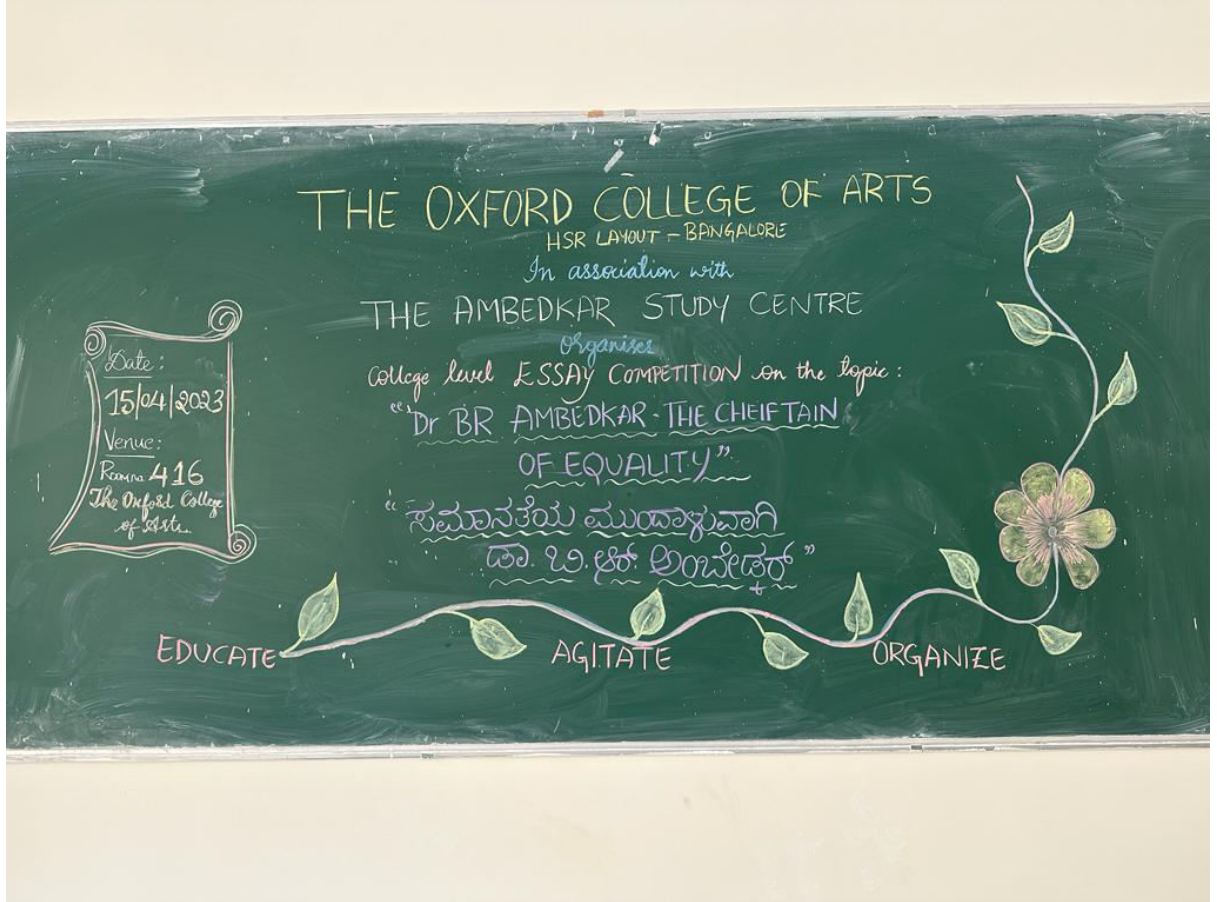 THE OXFORD COLLEGE OF ARTS
HSR LAYOUT - BANGALORE
In association with
THE AMBEDKAR STUDY CENTRE
organises
College level ESSAY COMPETITION on the topic :
"Dr BR AMBEDKAR - THE CHEIFTAIN
OF EQUALITY"
"ಸಮಾನತೆಯ ಮುಂದಾಳುವಾಗಿ
ಡಾ. ಬಿ. ಆರ್. ಅಂಬೇಡ್ಕರ್"
Date :
15/04/2023
Venue :
Room 416
The Oxford College
of Arts
EDUCATE AGITATE ORGANIZE